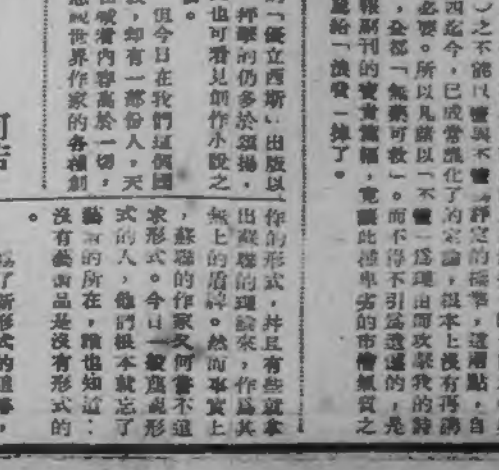 ）之不能以懂與不懂為評定的標準，這兩點，自
西迄今，已成常識化了的定論，根本上沒有再講
必要。所以凡諸以「不懂」為理由而攻擊我的詩
，全都「無藥可救」。而不得不引為遺憾的，是
報副刊的寶貴篇幅，竟讓此種卑劣的市儈氣質之
給「浪費」掉了。
的「優立西斯」出版以
抨擊的仍多於頌揚，
也可看見創作小說之
。
但今日在我們這個國
，却有一部份人，天
喊着內容高於一切，
忽視世界作家的各種創
作的形式，并且有些竟拿
出蘇聯的理論來，作為其
無上的盾牌。然而事實上
，蘇聯的作家又何嘗不追
求形式。今日一般蔑視形
式的人，他們根本就忘了
藝術的所在，誰也知道：
沒有藝術品是沒有形式的
。
了新形式的